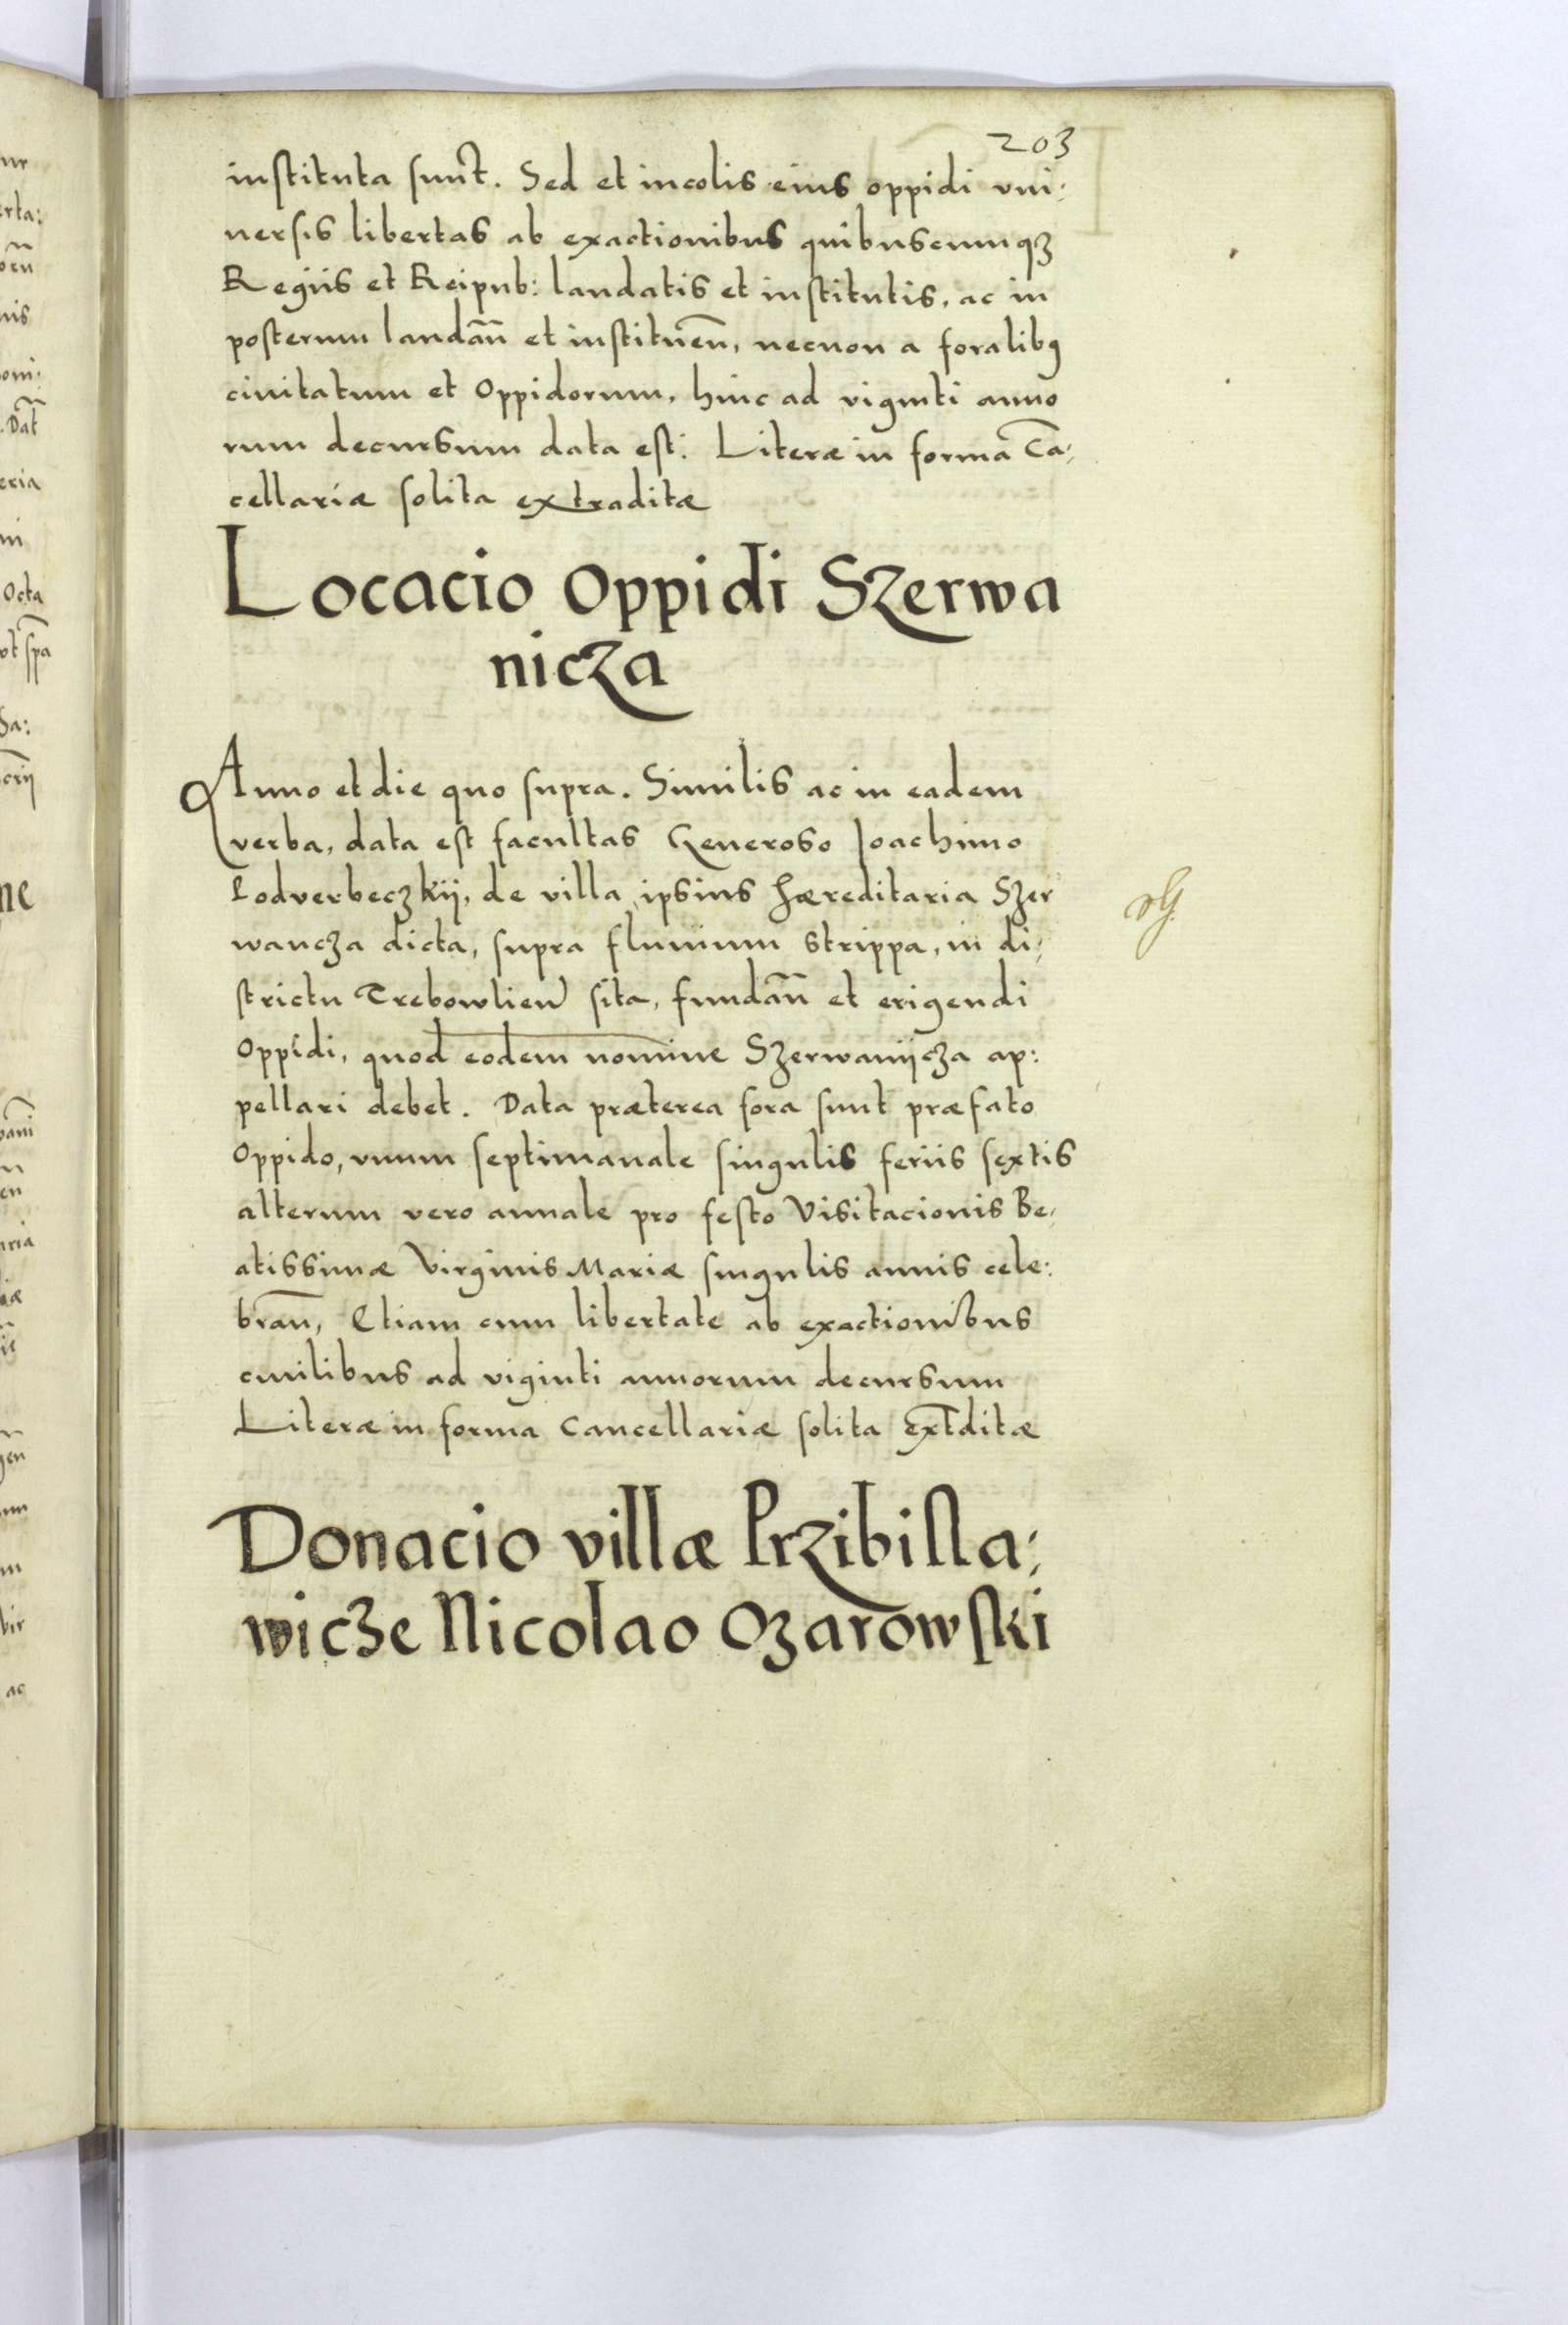 203
instituta sunt. Sed et incolis eius oppidi vni:
uersis libertas ab exactionibus quibuscumqꝫ
Regiis et Reipub: laudatis et institutis, ac in
posterum laudāń et instituēń, necnon a foralibꝰ
ciuitatum et Oppidorum, hinc ad viginti anno
rum decursum data est: Literæ in forma Cā:
cellariæ solita extraditæ
Locacio Oppidi Szerwa
nicza
Anno et die quo supra. Similis ac in eadem
verba, data est facultas Generoso Joachimo
Lodverbeczkij, de villa ipsius hæreditaria Szer
wancza dicta, supra fluuium Strippa, in di:
strictu Trebowlień sita, fundāń et erigendi
Oppidi, quod eodem nomine Szerwanijcza ap:
pellari debet. Data præterea fora sunt præfato
Oppido, vnum septimanale singulis feriis sextis
alterum vero annale pro festo Visitacionis Be:
atissimæ Virginis Mariæ singulis annis cele:
brań, Etiam cum libertate ab exactionibus
ciuilibus ad viginti annorum decursum
Literæ in forma Cancellariæ solita ext̄ditæ
Donacio villæ Przibisla:
wicze Nicolao Ozarowski